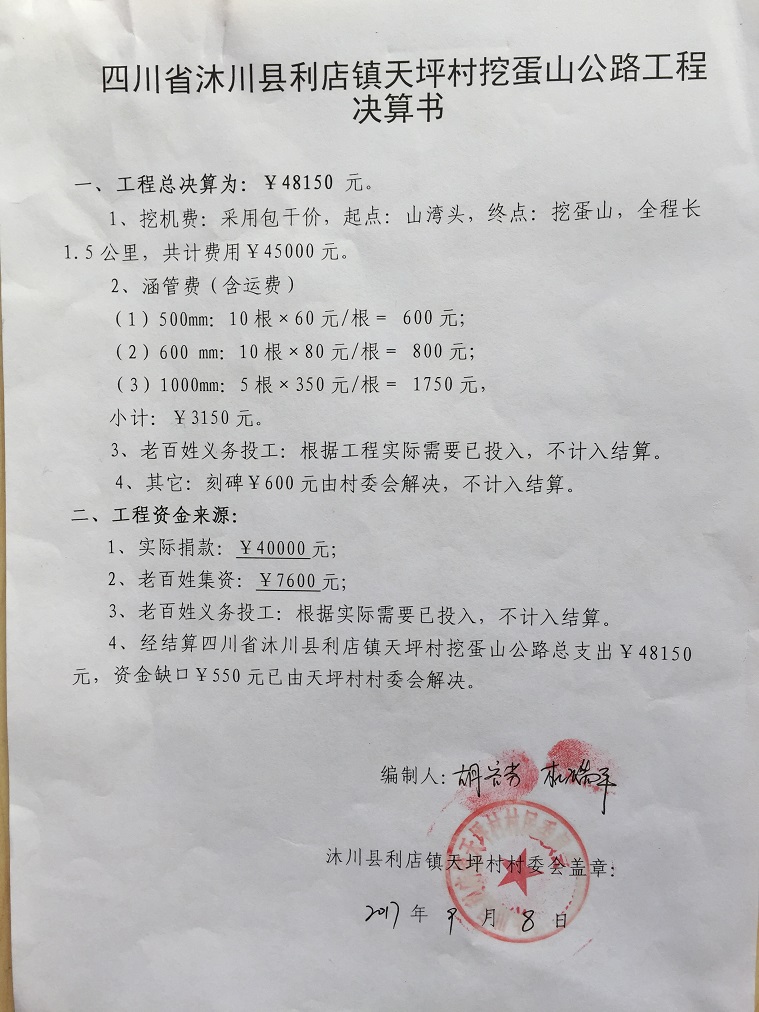 四川省沐川县利店镇天坪村挖蛋山公路工程
决算书
一、工程总决算为：￥48150 元。
1、挖机费：采用包干价，起点：山湾头，终点：挖蛋山，全程长
1.5 公里，共计费用￥45000 元。
2、涵管费（含运费）
（1）500mm：10 根×60 元/根＝ 600 元；
（2）600 mm：10 根×80 元/根＝ 800 元；
（3）1000mm：5 根×350 元/根＝ 1750 元，
小计：￥3150 元。
3、老百姓义务投工：根据工程实际需要已投入，不计入结算。
4、其它：刻碑￥600 元由村委会解决，不计入结算。
二、工程资金来源：
1、实际捐款：￥40000 元；
2、老百姓集资：￥7600 元；
3、老百姓义务投工：根据实际需要已投入，不计入结算。
4、经结算四川省沐川县利店镇天坪村挖蛋山公路总支出￥48150
元，资金缺口￥550 元已由天坪村村委会解决。
编制人：胡
沐川县利店镇天坪村村委会盖章：
2017 年 9 月 8 日